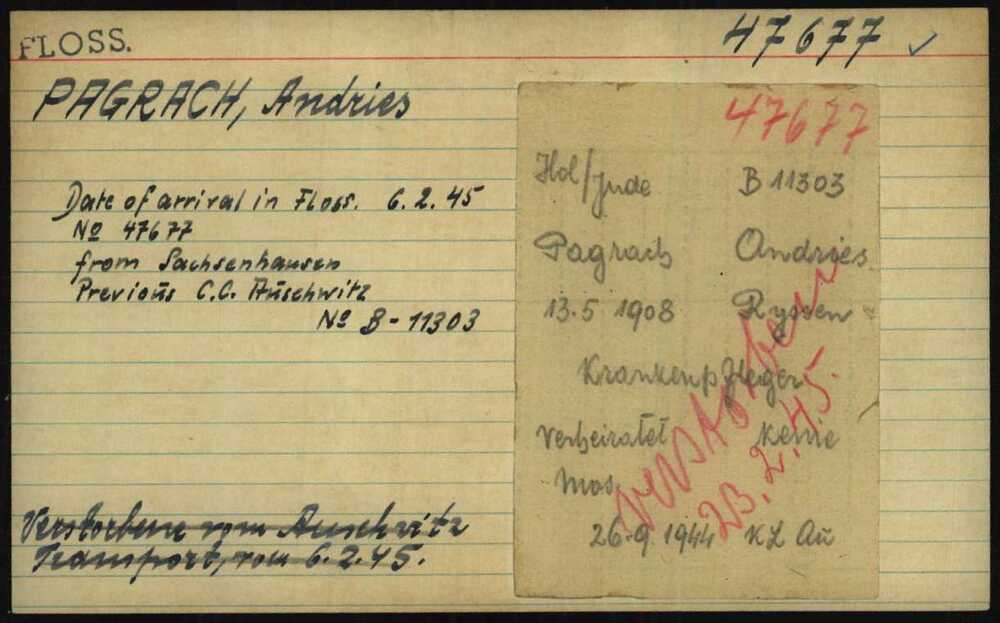 FLOSS.
47677 ✓
PAGRACH, Andries
Date of arrival in Floss. 6.2.45
No 47677
from Sachsenhausen
Previous C.C. Auschwitz
No B-11303
Verstorbene vom Auschwitz
Transport, vom 6.2.45.
47677
Hol/Jude B 11303
Pagrach Andries
13.5 1908 Ryssen
Krankenpfleger
Verheiratet keine
Mos.
26.9.1944 KL Au
verstorben
23.2.45.